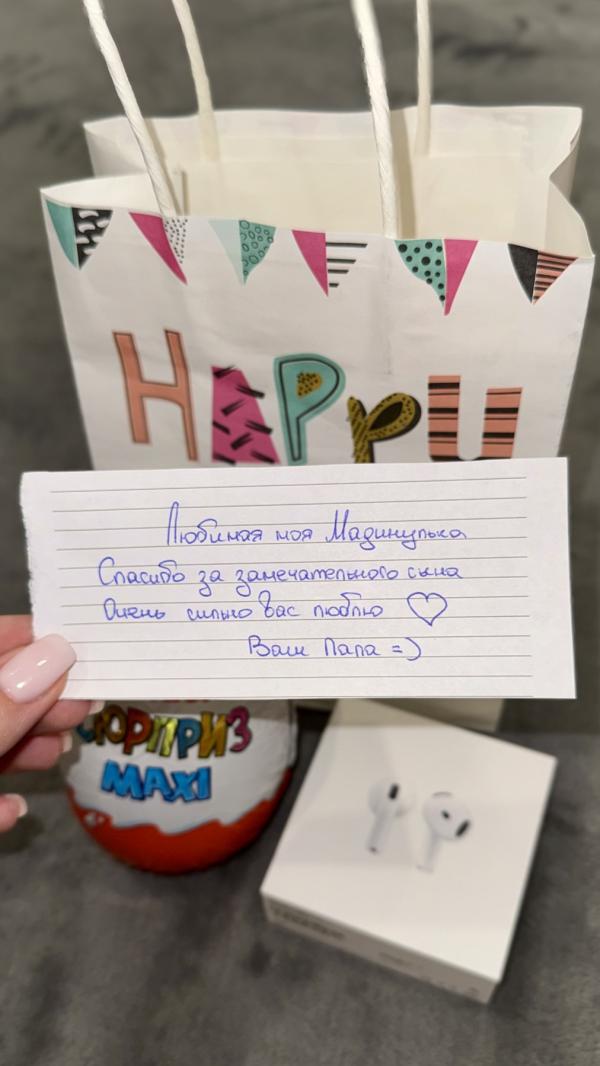 HAPPY
Любимая моя Мадинулька
Спасибо за замечательного сына
Очень сильно вас люблю ♡
Ваш Папа =)
СЮРПРИЗ
MAXI